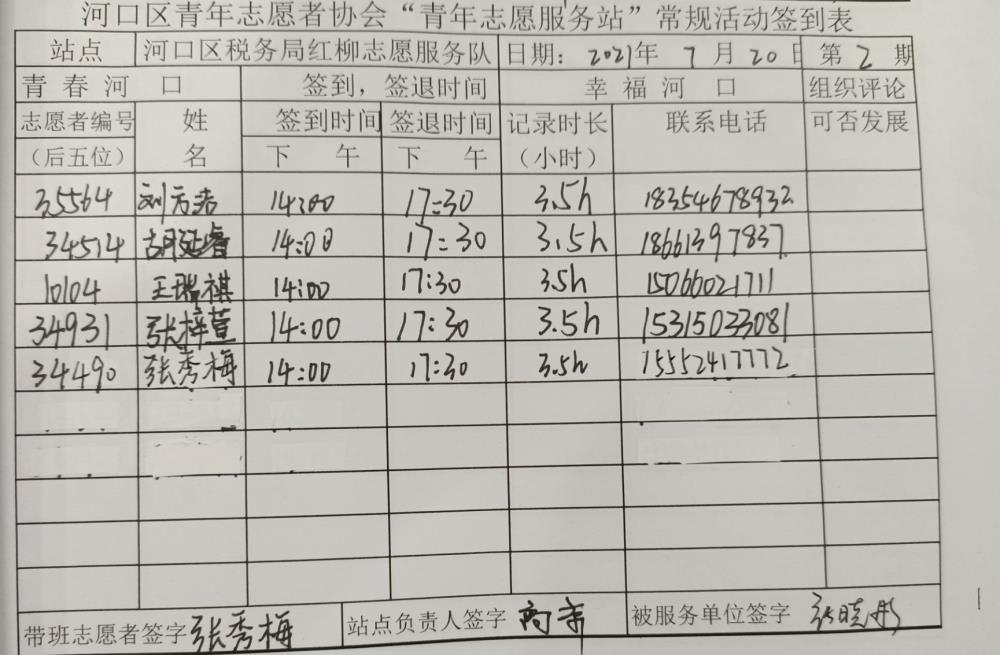 河口区青年志愿者协会“青年志愿服务站”常规活动签到表
站点 河口区税务局红柳志愿服务队 日期：2021年 7月 20日 第 2 期
青春河口 签到，签退时间 幸福河口 组织评论
志愿者编号 姓 签到时间 签退时间 记录时长 联系电话 可否发展
（后五位） 名 下 午 下 午 （小时）
35564 刘方浩 14:00 17:30 3.5h 18354678932
34514 胡延睿 14:00 17:30 3.5h 18661397837
10104 王瑞祺 14:00 17:30 3.5h 15066021711
34931 张梓萱 14:00 17:30 3.5h 15315023081
34490 张秀梅 14:00 17:30 3.5h 15552417772
带班志愿者签字 张秀梅 站点负责人签字 被服务单位签字 张晓彤